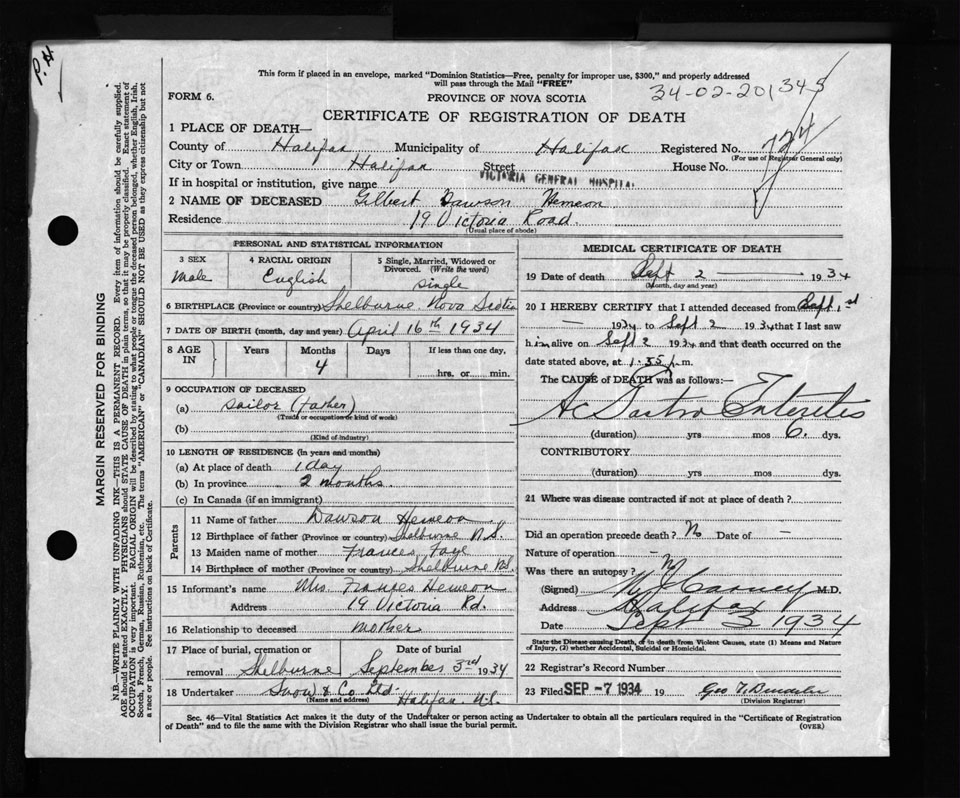 P.H.
This form if placed in an envelope, marked "Dominion Statistics—Free, penalty for improper use, $300," and properly addressed
will pass through the Mail "FREE"
34-02-201345
FORM 6.
PROVINCE OF NOVA SCOTIA
CERTIFICATE OF REGISTRATION OF DEATH
1 PLACE OF DEATH—
County of Halifax Municipality of Halifax Registered No. 724
(For use of Registrar General only)
City or Town Halifax Street House No.
If in hospital or institution, give name VICTORIA GENERAL HOSPITAL
2 NAME OF DECEASED Gilbert Dawson Hemeon
Residence 19 Victoria Road.
(Usual place of abode)
PERSONAL AND STATISTICAL INFORMATION
3 SEX
Male
4 RACIAL ORIGIN
English
5 Single, Married, Widowed or
Divorced. (Write the word)
single
6 BIRTHPLACE (Province or country) Shelburne Nova Scotia
7 DATE OF BIRTH (month, day and year) April 16th 1934
8 AGE IN
Years
Months
4
Days
If less than one day,
hrs. or min.
9 OCCUPATION OF DECEASED
(a) Sailor (Father)
(Trade or occupation or kind of work)
(b)
(Kind of industry)
10 LENGTH OF RESIDENCE (in years and months)
(a) At place of death 1 day
(b) In province 2 months.
(c) In Canada (if an immigrant)
Parents
11 Name of father Dawson Hemeon
12 Birthplace of father (Province or country) Shelburne N.S.
13 Maiden name of mother Frances Faye
14 Birthplace of mother (Province or country) Shelburne N.S.
15 Informant's name Mrs. Frances Hemeon
Address 19 Victoria Rd.
16 Relationship to deceased Mother
17 Place of burial, cremation or
removal Shelburne
Date of burial
September 3rd 1934
18 Undertaker Snow & Co. Ltd.
(Name and address) Halifax N.S.
MEDICAL CERTIFICATE OF DEATH
19 Date of death Sept 2 1934
(Month, day and year)
20 I HEREBY CERTIFY that I attended deceased from Sept 1st
— 1934 to Sept 2 1934 that I last saw
h im alive on Sept 2 1934 and that death occurred on the
date stated above, at 1.35 p.m.
The CAUSE of DEATH was as follows:—
Ac Gastro Enteritis
(duration) yrs mos 6. dys.
CONTRIBUTORY
(duration) yrs mos dys.
21 Where was disease contracted if not at place of death?
Did an operation precede death? No Date of —
Nature of operation —
Was there an autopsy? N
(Signed) M.D.
Address Halifax
Date Sept 3 1934
State the Disease causing Death, or in death from Violent Causes, state (1) Means and Nature
of Injury, (2) whether Accidental, Suicidal or Homicidal.
22 Registrar's Record Number
23 Filed SEP -7 1934 19 Geo
(Division Registrar)
Sec. 46—Vital Statistics Act makes it the duty of the Undertaker or person acting as Undertaker to obtain all the particulars required in the "Certificate of Registration
of Death" and to file the same with the Division Registrar who shall issue the burial permit.
(OVER)
MARGIN RESERVED FOR BINDING
N.B.—WRITE PLAINLY WITH UNFADING INK—THIS IS A PERMANENT RECORD. Every item of information should be carefully supplied.
AGE should be stated EXACTLY. PHYSICIANS should STATE CAUSE OF DEATH in plain terms, so that it may be properly classified. Exact statement of
OCCUPATION is very important. RACIAL ORIGIN will be described by stating to what people or tongue the deceased person belonged, whether English, Irish,
Scotch, French, German, Russian, Ruthenian, etc. The terms "AMERICAN" or "CANADIAN" SHOULD NOT BE USED as they express citizenship but not
a race or people. See instructions on back of Certificate.